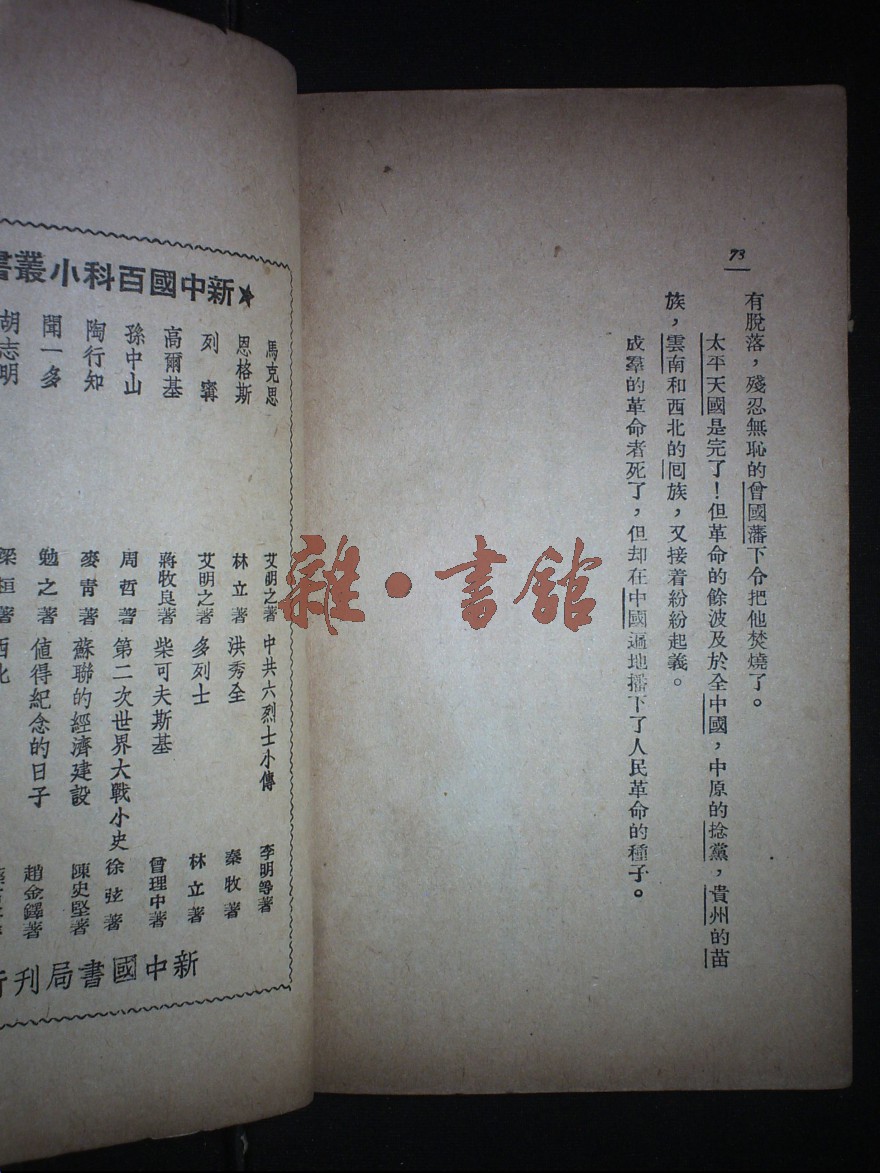 73
有脫落，殘忍無恥的曾國藩下令把他焚燒了。
太平天國是完了！但革命的餘波及於全中國，中原的捻黨，貴州的苗
族，雲南和西北的囘族，又接着紛紛起義。
成羣的革命者死了，但却在中國遍地播下了人民革命的種子。
雜·書館
★新中國百科小叢書
馬克思 艾明之著 中共六烈士小傳 李明等著
恩格斯 林立著 洪秀全 秦牧著
列寧 艾明之著 多列士 林立著
高爾基 蔣牧良著 柴可夫斯基 曾理中著
孫中山 周哲著 第二次世界大戰小史 徐弦著
陶行知 麥青著 蘇聯的經濟建設 陳史堅著
聞一多 勉之著 値得紀念的日子 趙金鐸著
胡志明 梁桓著 西北
新中國書局刊行